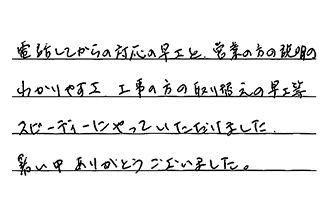 電話してからの対応の早エと、営業の方の説明の
わかりやすエ 工事の方の取り替えの早エ等
スピーディーにやっていただけました。
暑い中ありがとうございました。